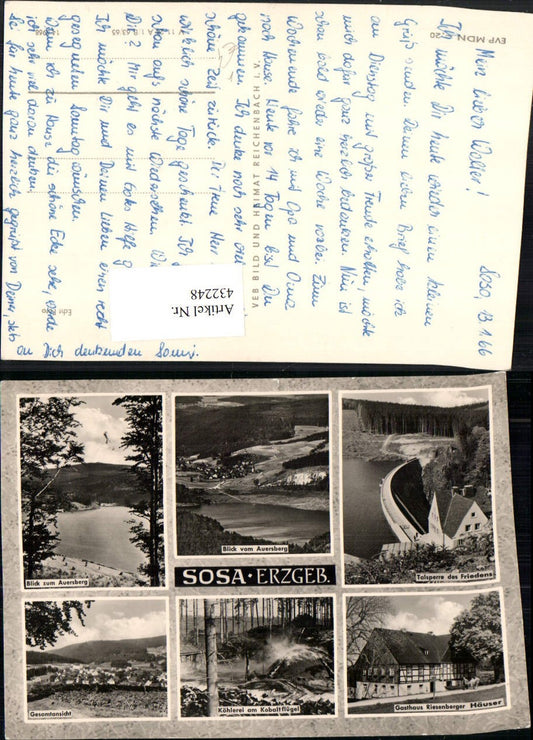 EVP MDN 0.20
Sosa, 13.1.66
Mein lieber Walter!
Ich möchte Dir heute wieder einen kleinen
Gruß senden. Deinen lieben Brief habe ich
am Dienstag mit großer Freude erhalten, möchte
mich dafür ganz herzlich bedanken. Nun ist
schon bald wieder eine Woche vorbei. Zum
Wochenende fahre ich mit Opa und Oma
nach Hause. Heute vor 14 Tagen bist Du
gekommen. Ich denke noch sehr oft
schöne Zeit zurück. Der
schöne Tage geschenkt. Ich
schon aufs nächste Wiedersehen. Wie
Dir? Mir geht es mit Gottes Hilfe g
Ich möchte Dir und Deinen Lieben einen recht
gesegneten Sonntag wünschen.
Wenn ich zu Hause die schöne Ecke sehe, werde
ich sehr viel daran denken.
Sei für heute ganz herzlich gegrüßt von Deiner, stets
an Dich denkenden
VEB BILD UND HEIMAT REICHENBACH I. V.
Echt Foto
Artikel Nr.
432248
Blick zum Auersberg
Blick vom Auersberg
Talsperre des Friedens
SOSA · ERZGEB.
Gesamtansicht
Köhlerei am Kobaltflügel
Gasthaus Riesenberger Häuser